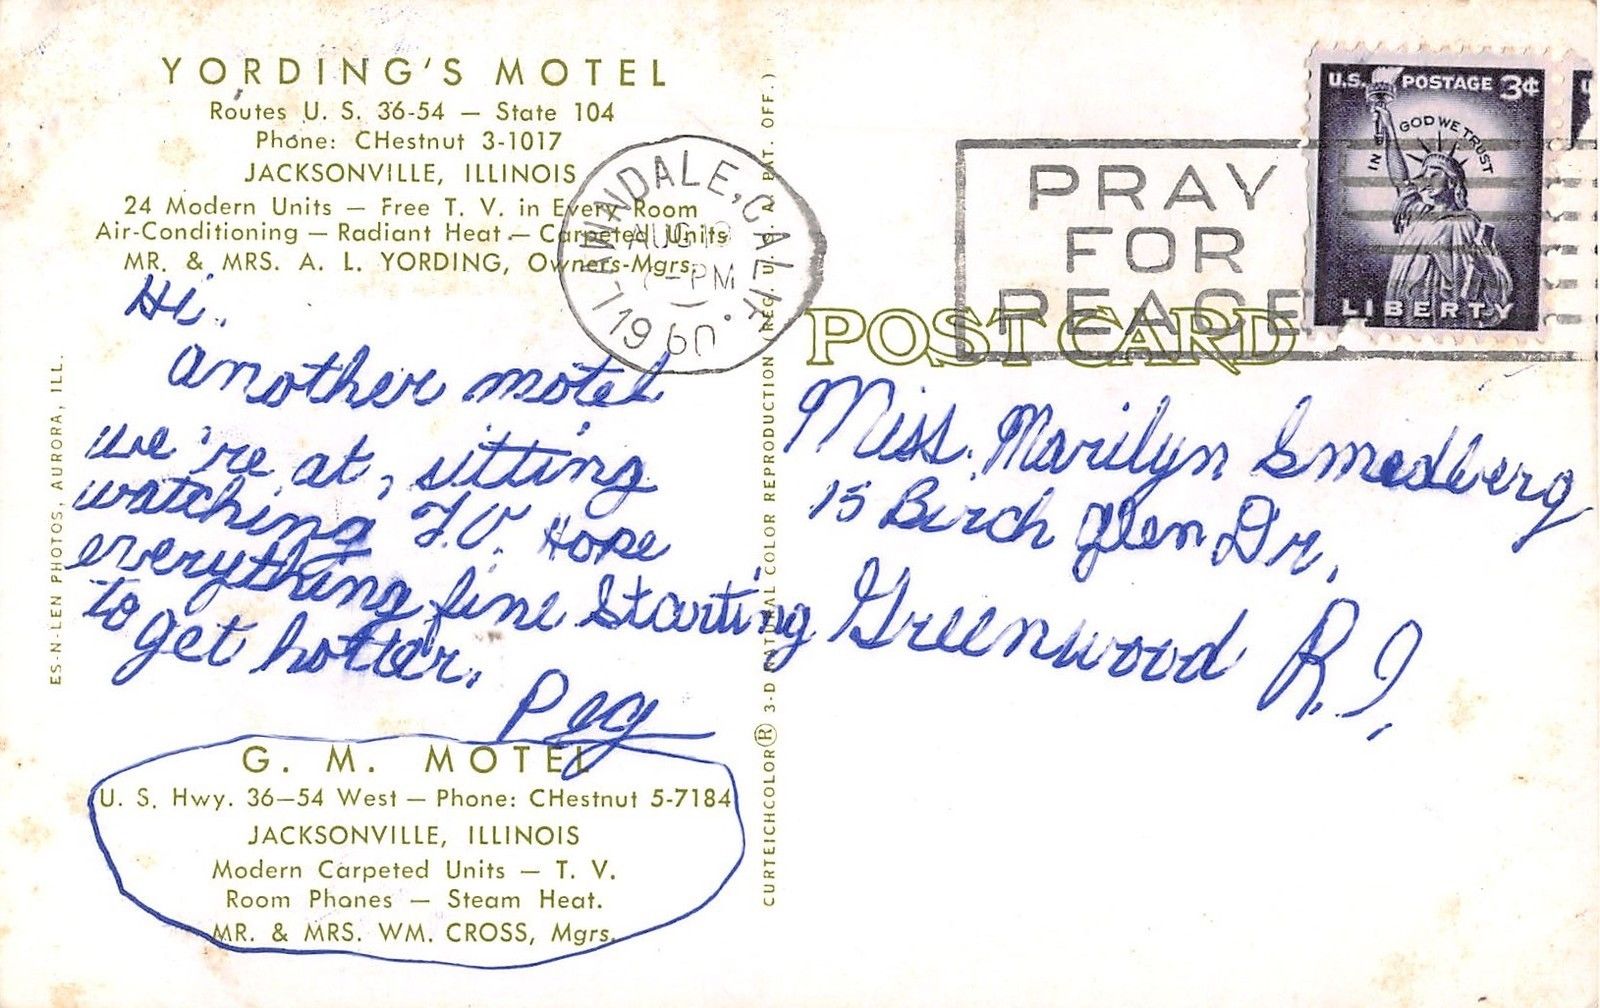 YORDING'S MOTEL
Routes U. S. 36-54 — State 104
Phone: CHestnut 3-1017
JACKSONVILLE, ILLINOIS
24 Modern Units — Free T. V. in Every Room
Air-Conditioning — Radiant Heat — Carpeted Units
MR. & MRS. A. L. YORDING, Owners-Mgrs.
Hi.
another motel
we're at, sitting
watching T.V. Hope
everything fine Starting
to get hotter.
Peg
G. M. MOTEL
U. S. Hwy. 36—54 West — Phone: CHestnut 5-7184
JACKSONVILLE, ILLINOIS
Modern Carpeted Units — T. V.
Room Phones — Steam Heat.
MR. & MRS. WM. CROSS, Mgrs.
ES-N-LEN PHOTOS, AURORA, ILL.
CURTEICHCOLOR® 3-D NATURAL COLOR REPRODUCTION (REG. U. S. A. PAT. OFF.)
LAWNDALE, CALIF.
AUG
PM
1960
PRAY
FOR
PEACE
U.S. POSTAGE 3¢
IN GOD WE TRUST
LIBERTY
POST CARD
Miss. Marilyn Smedberg
15 Birch Glen Dr.
Greenwood R.I.